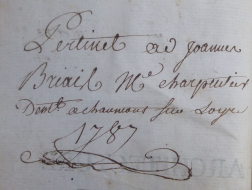 Pertinet ad joannes
Breail Me charpentier
Demt a chaumont sur Loyre
1787